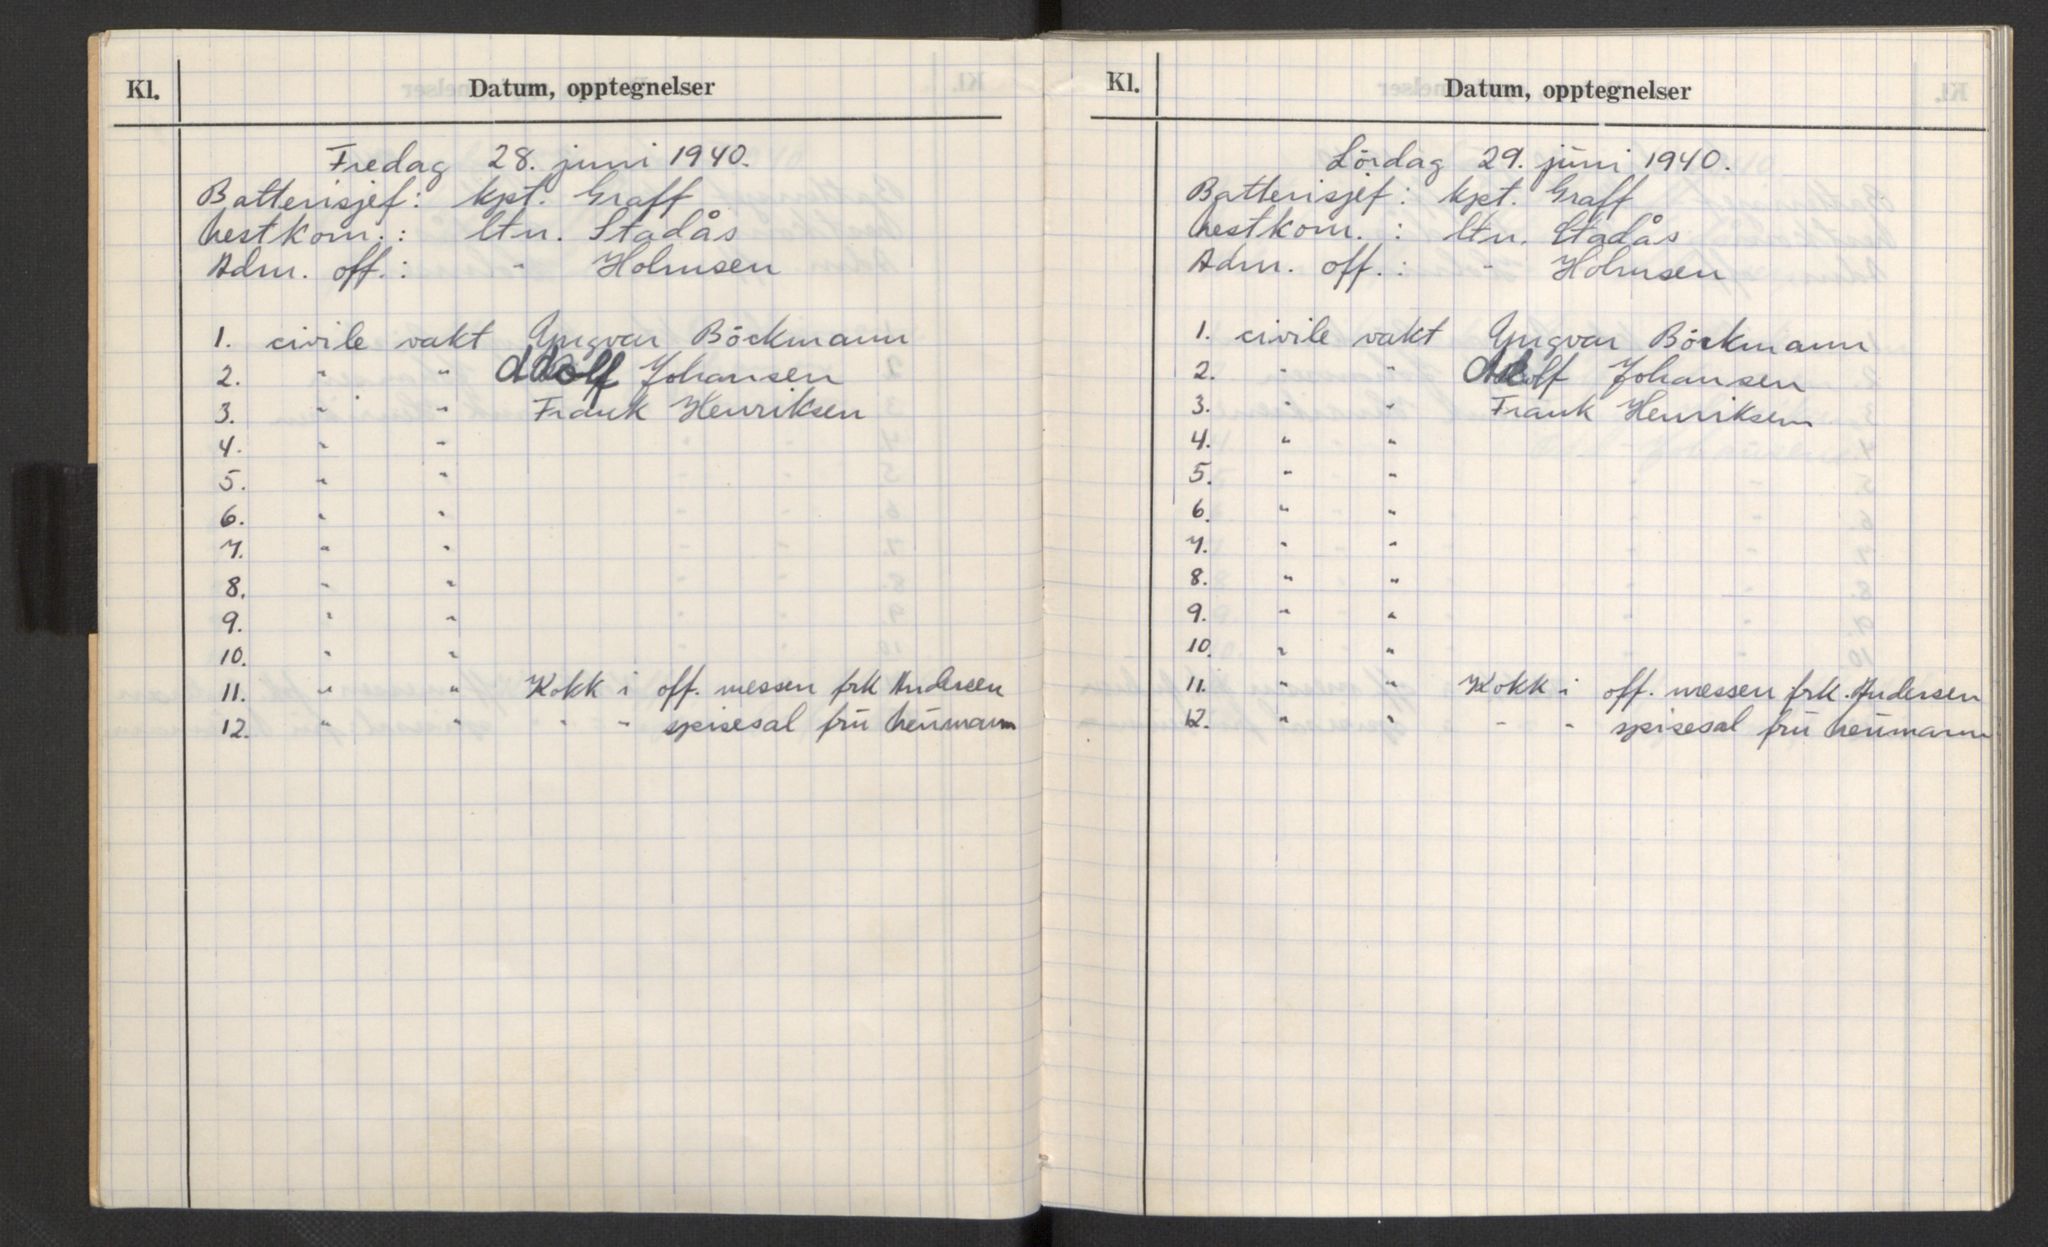 Kl. Datum, opptegnelser
Fredag 28. juni 1940.
Batterisjef: kpt. Graff
Nestkom.: ltn. Stadås
Adm. off.: " Holmsen
1. civile vakt Yngvar Böckmann
2. " " Adolf Johansen
3. " " Frank Henriksen
4. " "
5. " "
6. " "
7. " "
8. " "
9. " "
10. " "
11. " " Kokk i off. messen frk Andersen
12. " " " " spisesal fru Neumann
Kl. Datum, opptegnelser
Lördag 29. juni 1940.
Batterisjef: kpt. Graff
Nestkom.: ltn. Stadås
Adm. off.: " Holmsen
1. civile vakt Yngvar Böckmann
2. " " Adolf Johansen
3. " " Frank Henriksen
4. " "
5. " "
6. " "
7. " "
8. " "
9. " "
10. " "
11. " " Kokk i off. messen frk. Andersen
12. " " " " spisesal fru Neumann